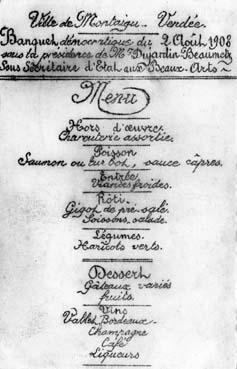 Ville de Montaigu - Vendée
Banquet démocratique du 2 Août 1908
sous la présidence de Mr Dujardin-Beaumetz
Sous Secrétaire d'Etat aux Beaux-Arts
Menu
Hors d'œuvre
Charcuterie assortie.
Poisson
Saumon ou bar, sauce capres.
Entrée
Viandes froides.
Rôti
Gigot de pré-salé.
salade.
Légumes.
Haricots verts.
Dessert
Gâteaux variés
fruits.
Vins
Vallet Bordeaux.
Champagne
Café
Liqueurs